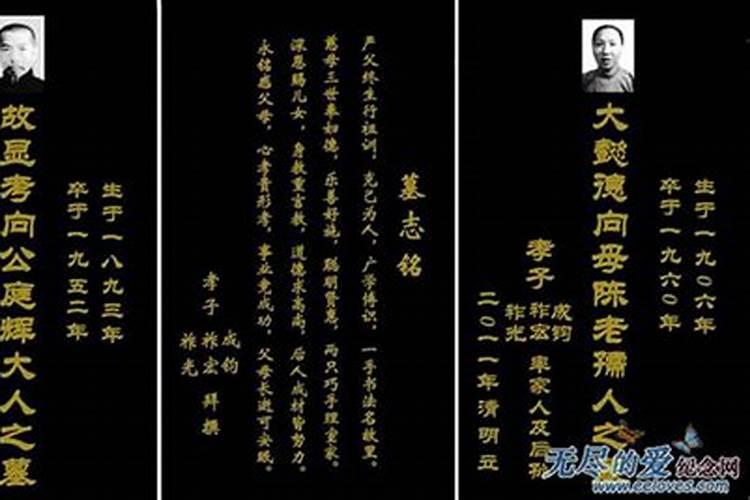 故显考向公庭辉大人之墓
生于一八九三年
卒于一九五二年
墓志铭
严父终生行祖训，克己为人，广学博识，一手书法名故里。
慈母三世奉妇德，乐善好施，聪明贤惠，两只巧手理室家。
深恩赐儿女，身教重言教，道德求高尚，后人成材皆努力。
永铭感父母，心孝贵形孝，事业竟成功，父母长逝可安眠。
孝子
成钧
祚宏
祚光
拜撰
大懿德向母陈老孺人之
生于一九〇六年
卒于一九六〇年
孝子
成钧
祚宏
祚光
率家人及后
二〇一一年清明立
无尽的爱纪念网
www.eeloves.com